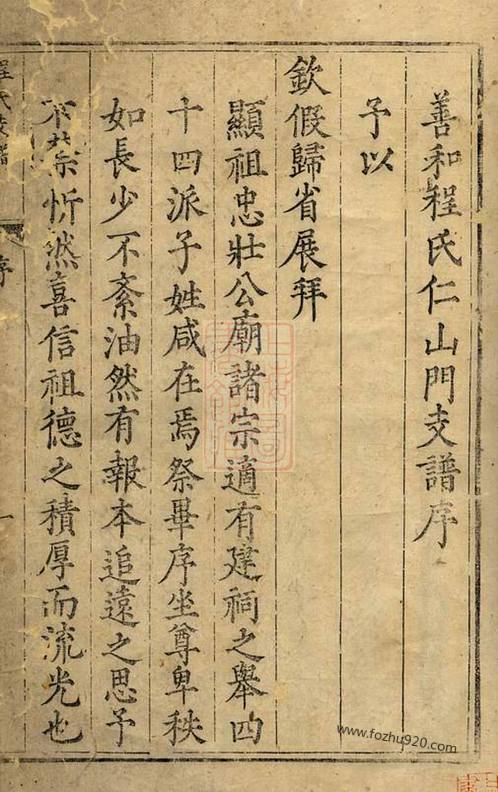 善和程氏仁山門支譜序
予以
欽假歸省展拜
顯祖忠壯公廟諸宗適有建祠之舉四
十四派子姓咸在焉祭畢序坐尊卑秩
如長少不紊油然有報本追遠之思予
不禁忻然喜信祖德之積厚而流光也
程氏支譜
序
一
www.fozhu920.com